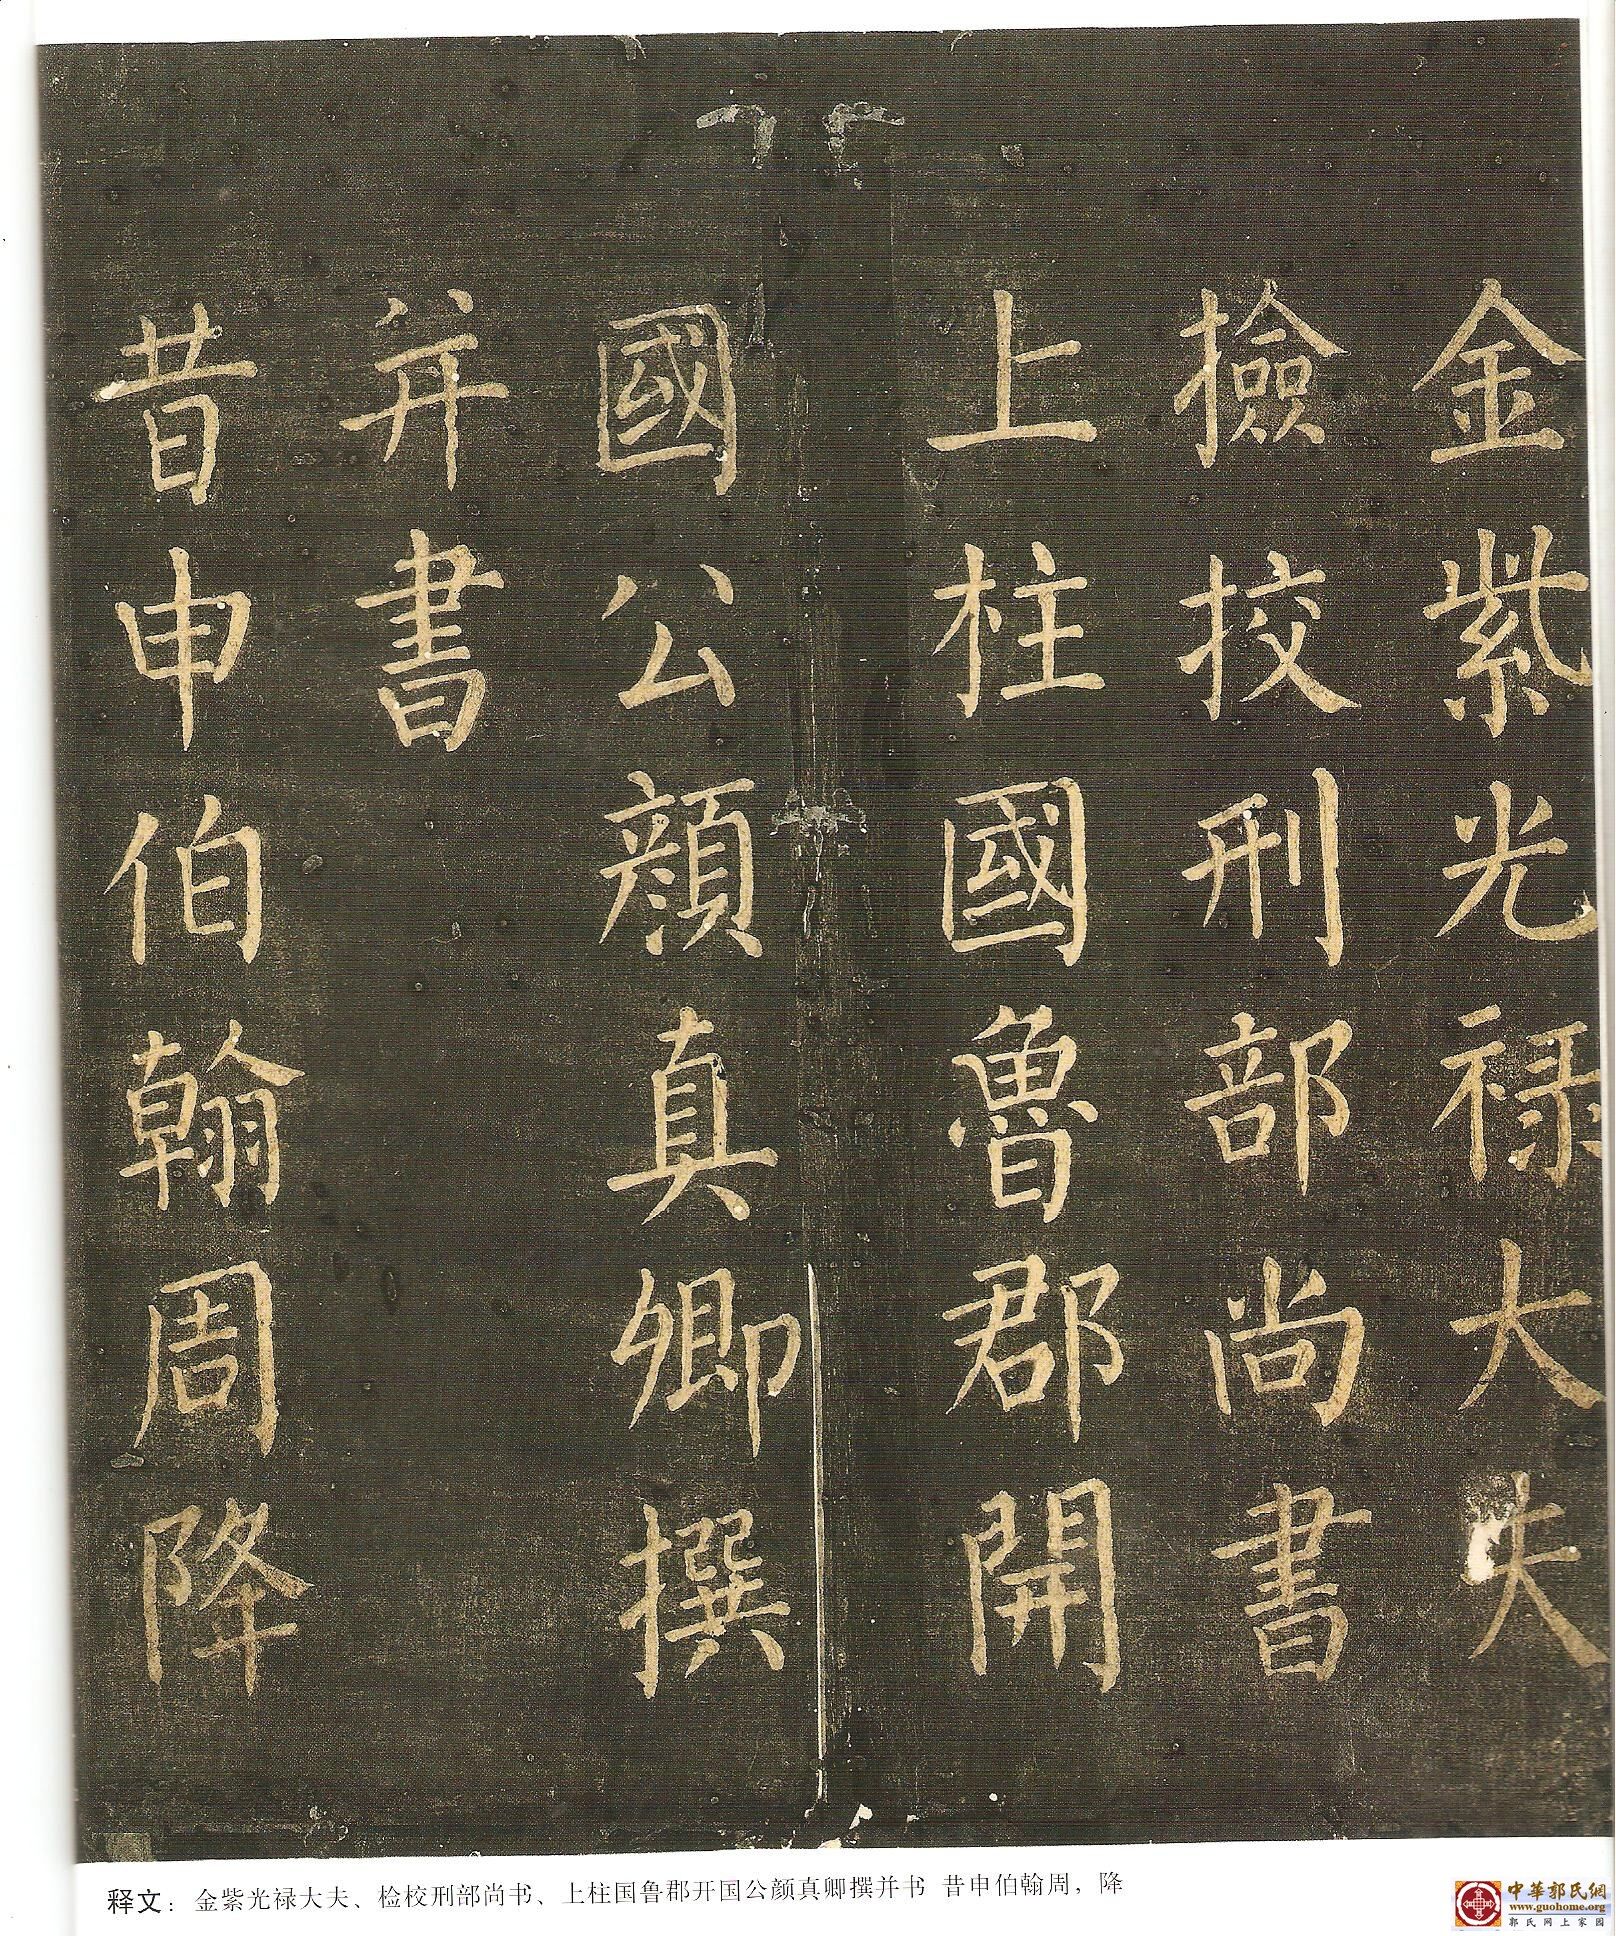 金紫光禄大夫
撿挍刑部尚書
上柱國魯郡開
國公顔真卿撰
并書
昔申伯翰周降
释文：金紫光禄大夫、检校刑部尚书、上柱国鲁郡开国公颜真卿撰并书 昔申伯翰周，降
中華郭氏網
www.guohome.org
郭氏网上家园